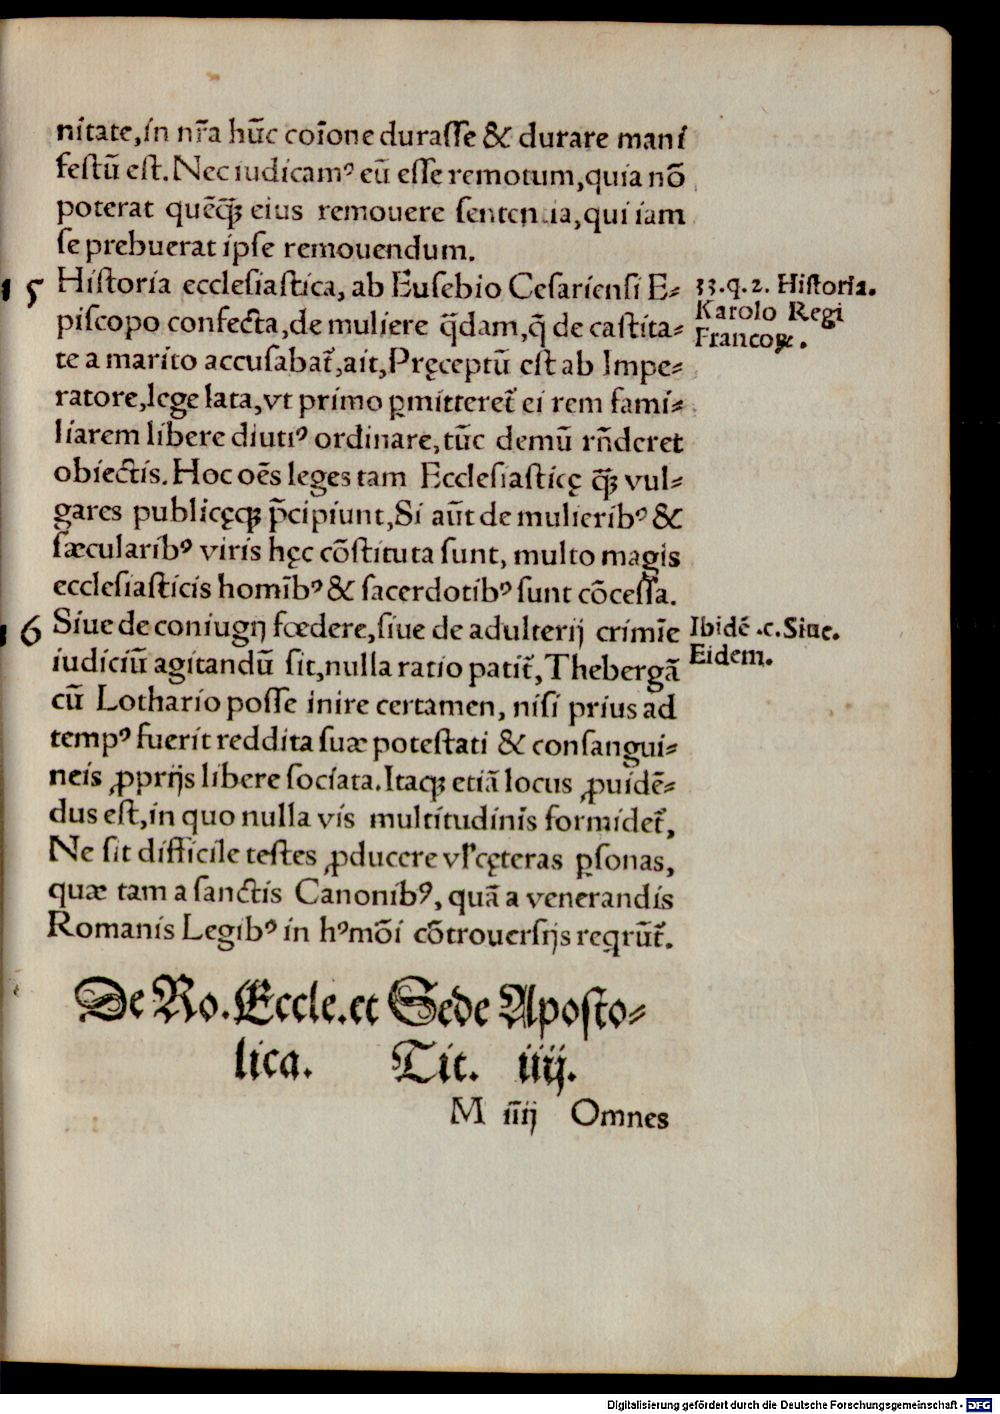 nitate,in nr̄a hūc coīone durasse & durare mani
festū est. Nec iudicamꝰ eū esse remotum,quia nō
poterat quēqꝫ̄ eius remouere sententia,qui iam
se prebuerat ipse remouendum.
15 Historia ecclesiastica, ab Eusebio Cesariensi E⸗
33.q.2. Historia.
piscopo confecta,de muliere q̄dam,q̄ de castita⸗
Karolo Regi
te a marito accusabat᷑,ait,Pręceptū est ab Impe⸗
Francoꝝ.
ratore,lege lata,vt primo ꝑmitteret᷑ ei rem fami⸗
liarem libere diutiꝰ ordinare,tūc demū rn̄deret
obiectis. Hoc oēs leges tam Ecclesiasticę qꝫ̄ vul⸗
gares publicęqꝫ p̄cipiunt,Si aūt de mulieribꝰ &
sæcularibꝰ viris hęc cōstituta sunt, multo magis
ecclesiasticis homībꝰ & sacerdotibꝰ sunt cōcessa.
16 Siue de coniugij fœdere,siue de adulterij crimīe
Ibidē .c.Siue.
iudiciū agitandū sit,nulla ratio patit᷑,Thebergā
Eidem.
cū Lothario posse inire certamen, nisi prius ad
tempꝰ fuerit reddita suæ potestati & consangui⸗
neis ꝓprijs libere sociata.Itaqꝫ etiā locus ꝓuidē⸗
dus est,in quo nulla vis multitudinis formidet᷑,
Ne sit difficile testes ꝓducere vl̓ cęteras ꝑsonas,
quæ tam a sanctis Canonibꝰ, quā a venerandis
Romanis Legibꝰ in hꝰmōi cōtrouersijs reqrūt᷑.
De Ro.Eccle.et Sede Aposto⸗
lica. Tit. iiij.
M iiij Omnes
Digitalisierung gefördert durch die Deutsche Forschungsgemeinschaft - DFG